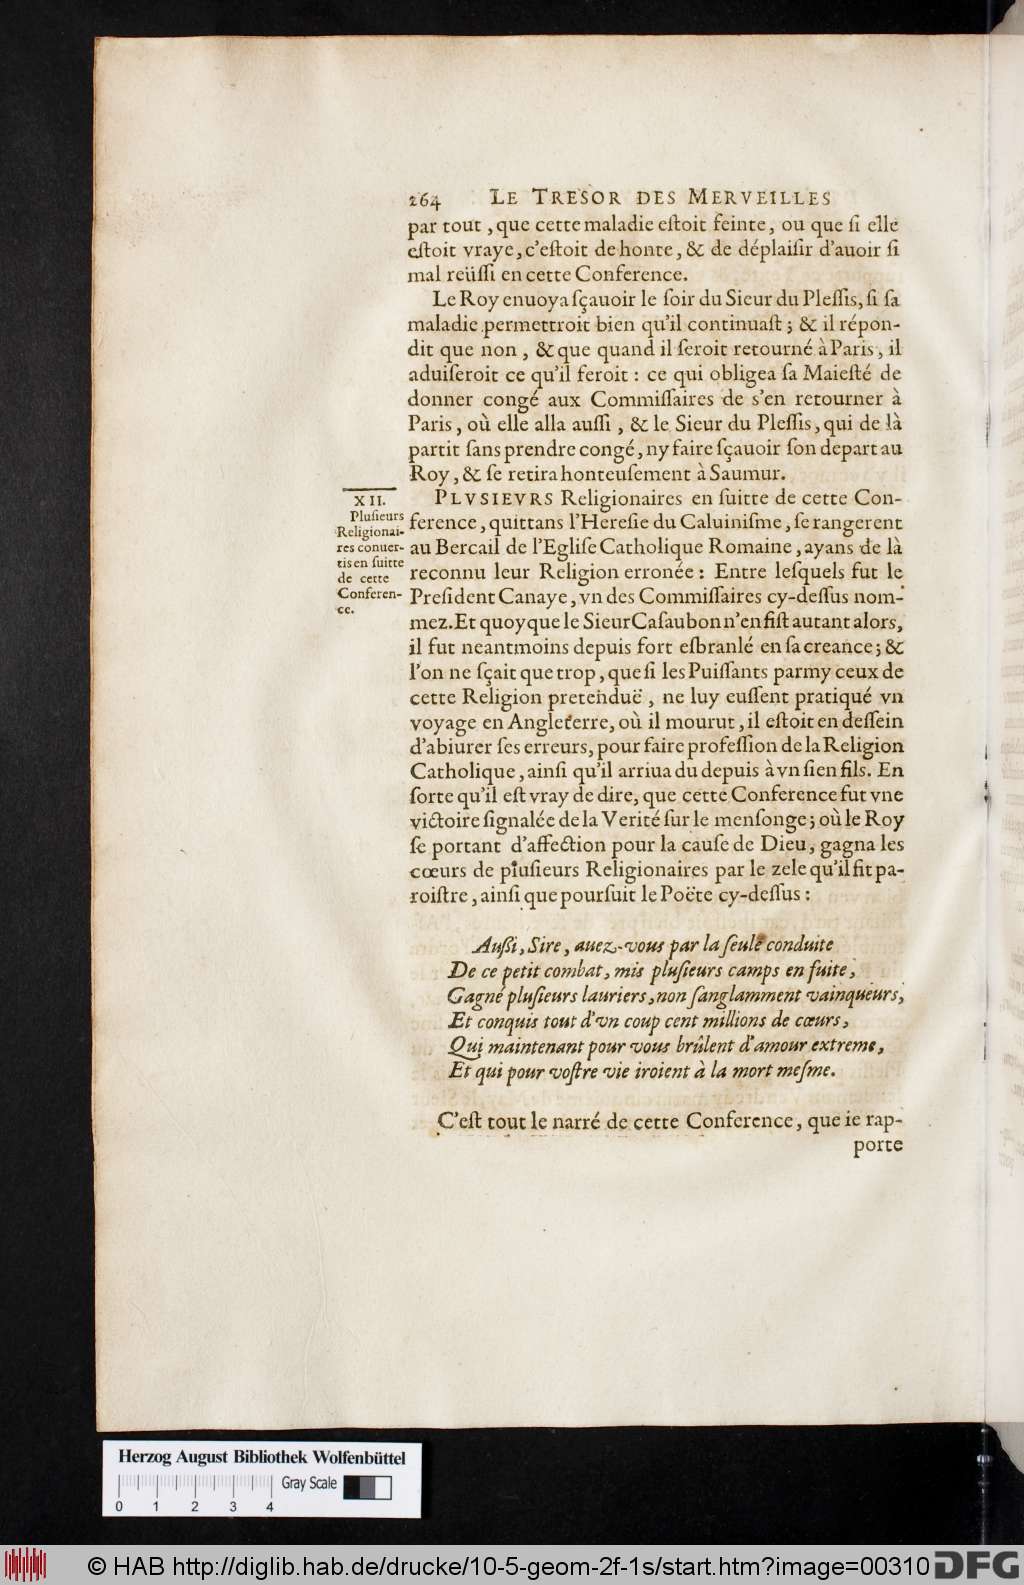 264 LE TRESOR DES MERVEILLES
par tout, que cette maladie eſtoit feinte, ou que ſi elle
eſtoit vraye, c'eſtoit de honte, & de déplaiſir d'auoir ſi
mal reüſſi en cette Conference.
Le Roy enuoya ſçauoir le ſoir du Sieur du Pleſſis, ſi ſa
maladie permettroit bien qu'il continuaſt; & il répon-
dit que non, & que quand il ſeroit retourné à Paris, il
aduiſeroit ce qu'il feroit: ce qui obligea ſa Maieſté de
donner congé aux Commiſſaires de s'en retourner à
Paris, où elle alla auſſi, & le Sieur du Pleſſis, qui de là
partit ſans prendre congé, ny faire ſçauoir ſon depart au
Roy, & ſe retira honteuſement à Saumur.
XII.
Pluſieurs
Religionai-
res conuer-
tis en ſuitte
de cette
Conferen-
ce.
PLVSIEVRS Religionaires en ſuitte de cette Con-
ference, quittans l'Hereſie du Caluiniſme, ſe rangerent
au Bercail de l'Egliſe Catholique Romaine, ayans de là
reconnu leur Religion erronée: Entre leſquels fut le
Preſident Canaye, vn des Commiſſaires cy-deſſus nom-
mez. Et quoyque le Sieur Caſaubon n'en fiſt autant alors,
il fut neantmoins depuis fort eſbranlé en ſa creance; &
l'on ne ſçait que trop, que ſi les Puiſſants parmy ceux de
cette Religion pretenduë, ne luy euſſent pratiqué vn
voyage en Angleterre, où il mourut, il eſtoit en deſſein
d'abiurer ſes erreurs, pour faire profeſſion de la Religion
Catholique, ainſi qu'il arriua du depuis à vn ſien fils. En
ſorte qu'il eſt vray de dire, que cette Conference fut vne
victoire ſignalée de la Verité ſur le menſonge; où le Roy
ſe portant d'affection pour la cauſe de Dieu, gagna les
cœurs de pluſieurs Religionaires par le zele qu'il fit pa-
roiſtre, ainſi que pourſuit le Poëte cy-deſſus:
Außi, Sire, auez-vous par la ſeule conduite
De ce petit combat, mis pluſieurs camps en fuite,
Gagné pluſieurs lauriers, non ſanglamment vainqueurs,
Et conquis tout d'vn coup cent millions de cœurs,
Qui maintenant pour vous brûlent d'amour extreme,
Et qui pour voſtre vie iroient à la mort meſme.
C'eſt tout le narré de cette Conference, que ie rap-
porte
Herzog August Bibliothek Wolfenbüttel
Gray Scale
0 1 2 3 4
© HAB http://diglib.hab.de/drucke/10-5-geom-2f-1s/start.htm?image=00310 DFG